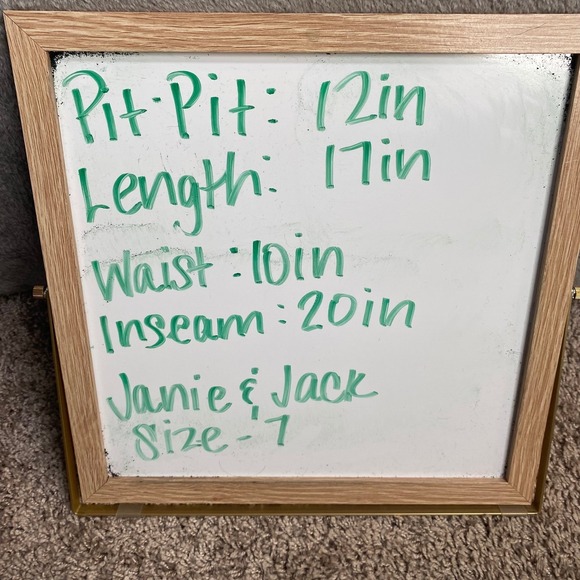 Pit-Pit: 12in
Length: 17in
Waist: 10in
Inseam: 20in
Janie & Jack
Size - 7